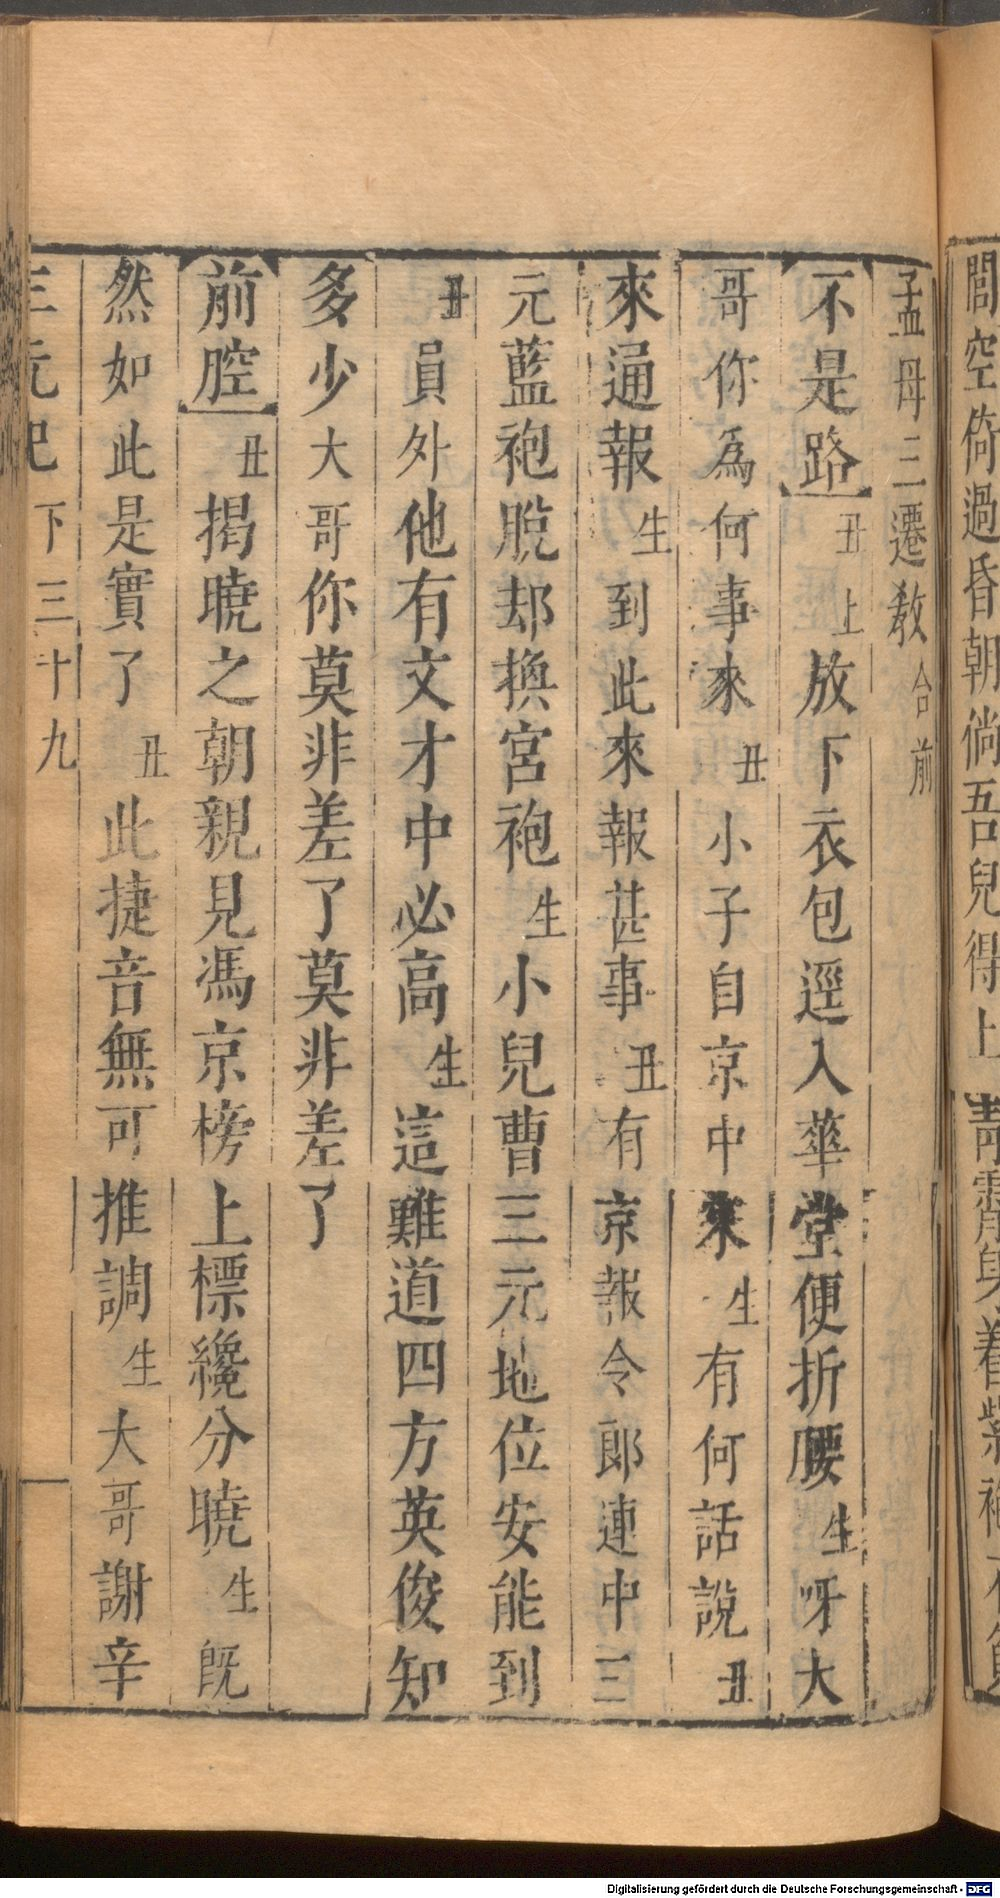 閭空倚過昏朝倘吾兒得上
孟母三遷教合前
不是路丑上放下衣包逕入華堂便折腰生呀大
哥你為何事來丑小子自京中來生有何話說丑
來通報生到此來報甚事丑有京報令郎連中三
元藍袍脫却換宮袍生小兒曹三元地位安能到
丑員外他有文才中必高生這難道四方英俊知
多少大哥你莫非差了莫非差了
前腔丑揭曉之朝親見馮京榜上標纔分曉生旣
然如此是實了丑此捷音無可推調生大哥謝辛
三元記下三十九
Digitalisierung gefördert durch die Deutsche Forschungsgemeinschaft - DFG